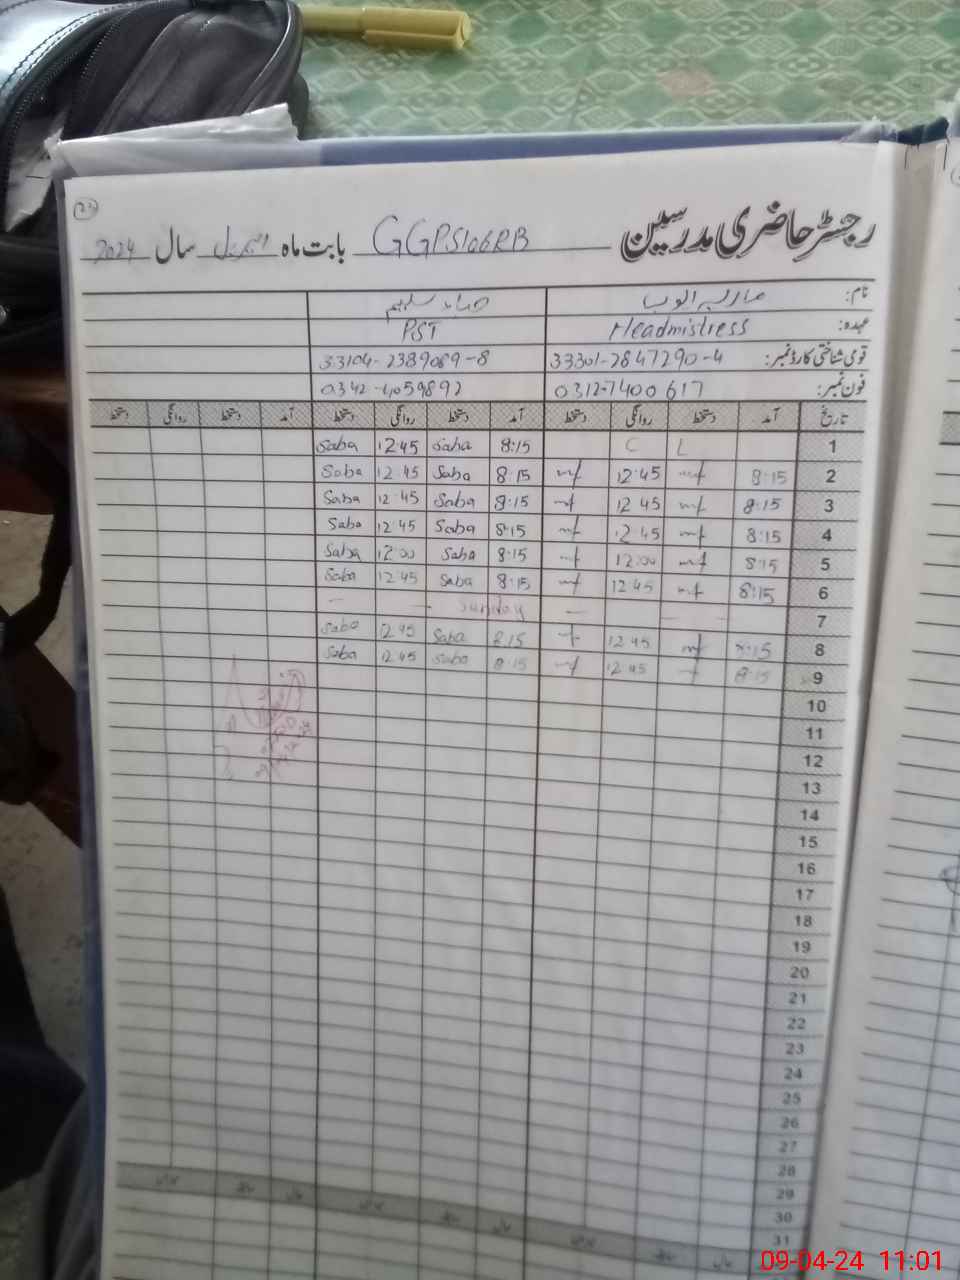 رجسٹر حاضری مدرسین GGPS106RB بابت ماہ اپریل سال 2024
نام: ماریہ ایوب صباء سلیم
عہدہ: Headmistress PST
قومی شناختی کارڈ نمبر: 33301-2847290-4 33104-2389089-8
فون نمبر: 0312-7400617 0342-4059892
تاریخ آمد دستخط روانگی دستخط آمد دستخط روانگی دستخط آمد دستخط روانگی دستخط
1 C L 8:15 Saba 12:45 Saba
2 8:15 mf 12:45 mf 8:15 Saba 12:45 Saba
3 8:15 mf 12:45 mf 8:15 Saba 12:45 Saba
4 8:15 mf 12:45 mf 8:15 Saba 12:45 Saba
5 8:15 mf 12:00 mf 8:15 Saba 12:00 Saba
6 8:15 mf 12:45 mf 8:15 Saba 12:45 Saba
7 — — — Sunday — —
8 8:15 mf 12:45 mf 8:15 Saba 12:45 Saba
9 8:15 mf 12:45 mf 8:15 Saba 12:45 Saba
10
11
12
13
14
15
16
17
18
19
20
21
22
23
24
25
26
27
28
29
30
31
09-04-24 11:01